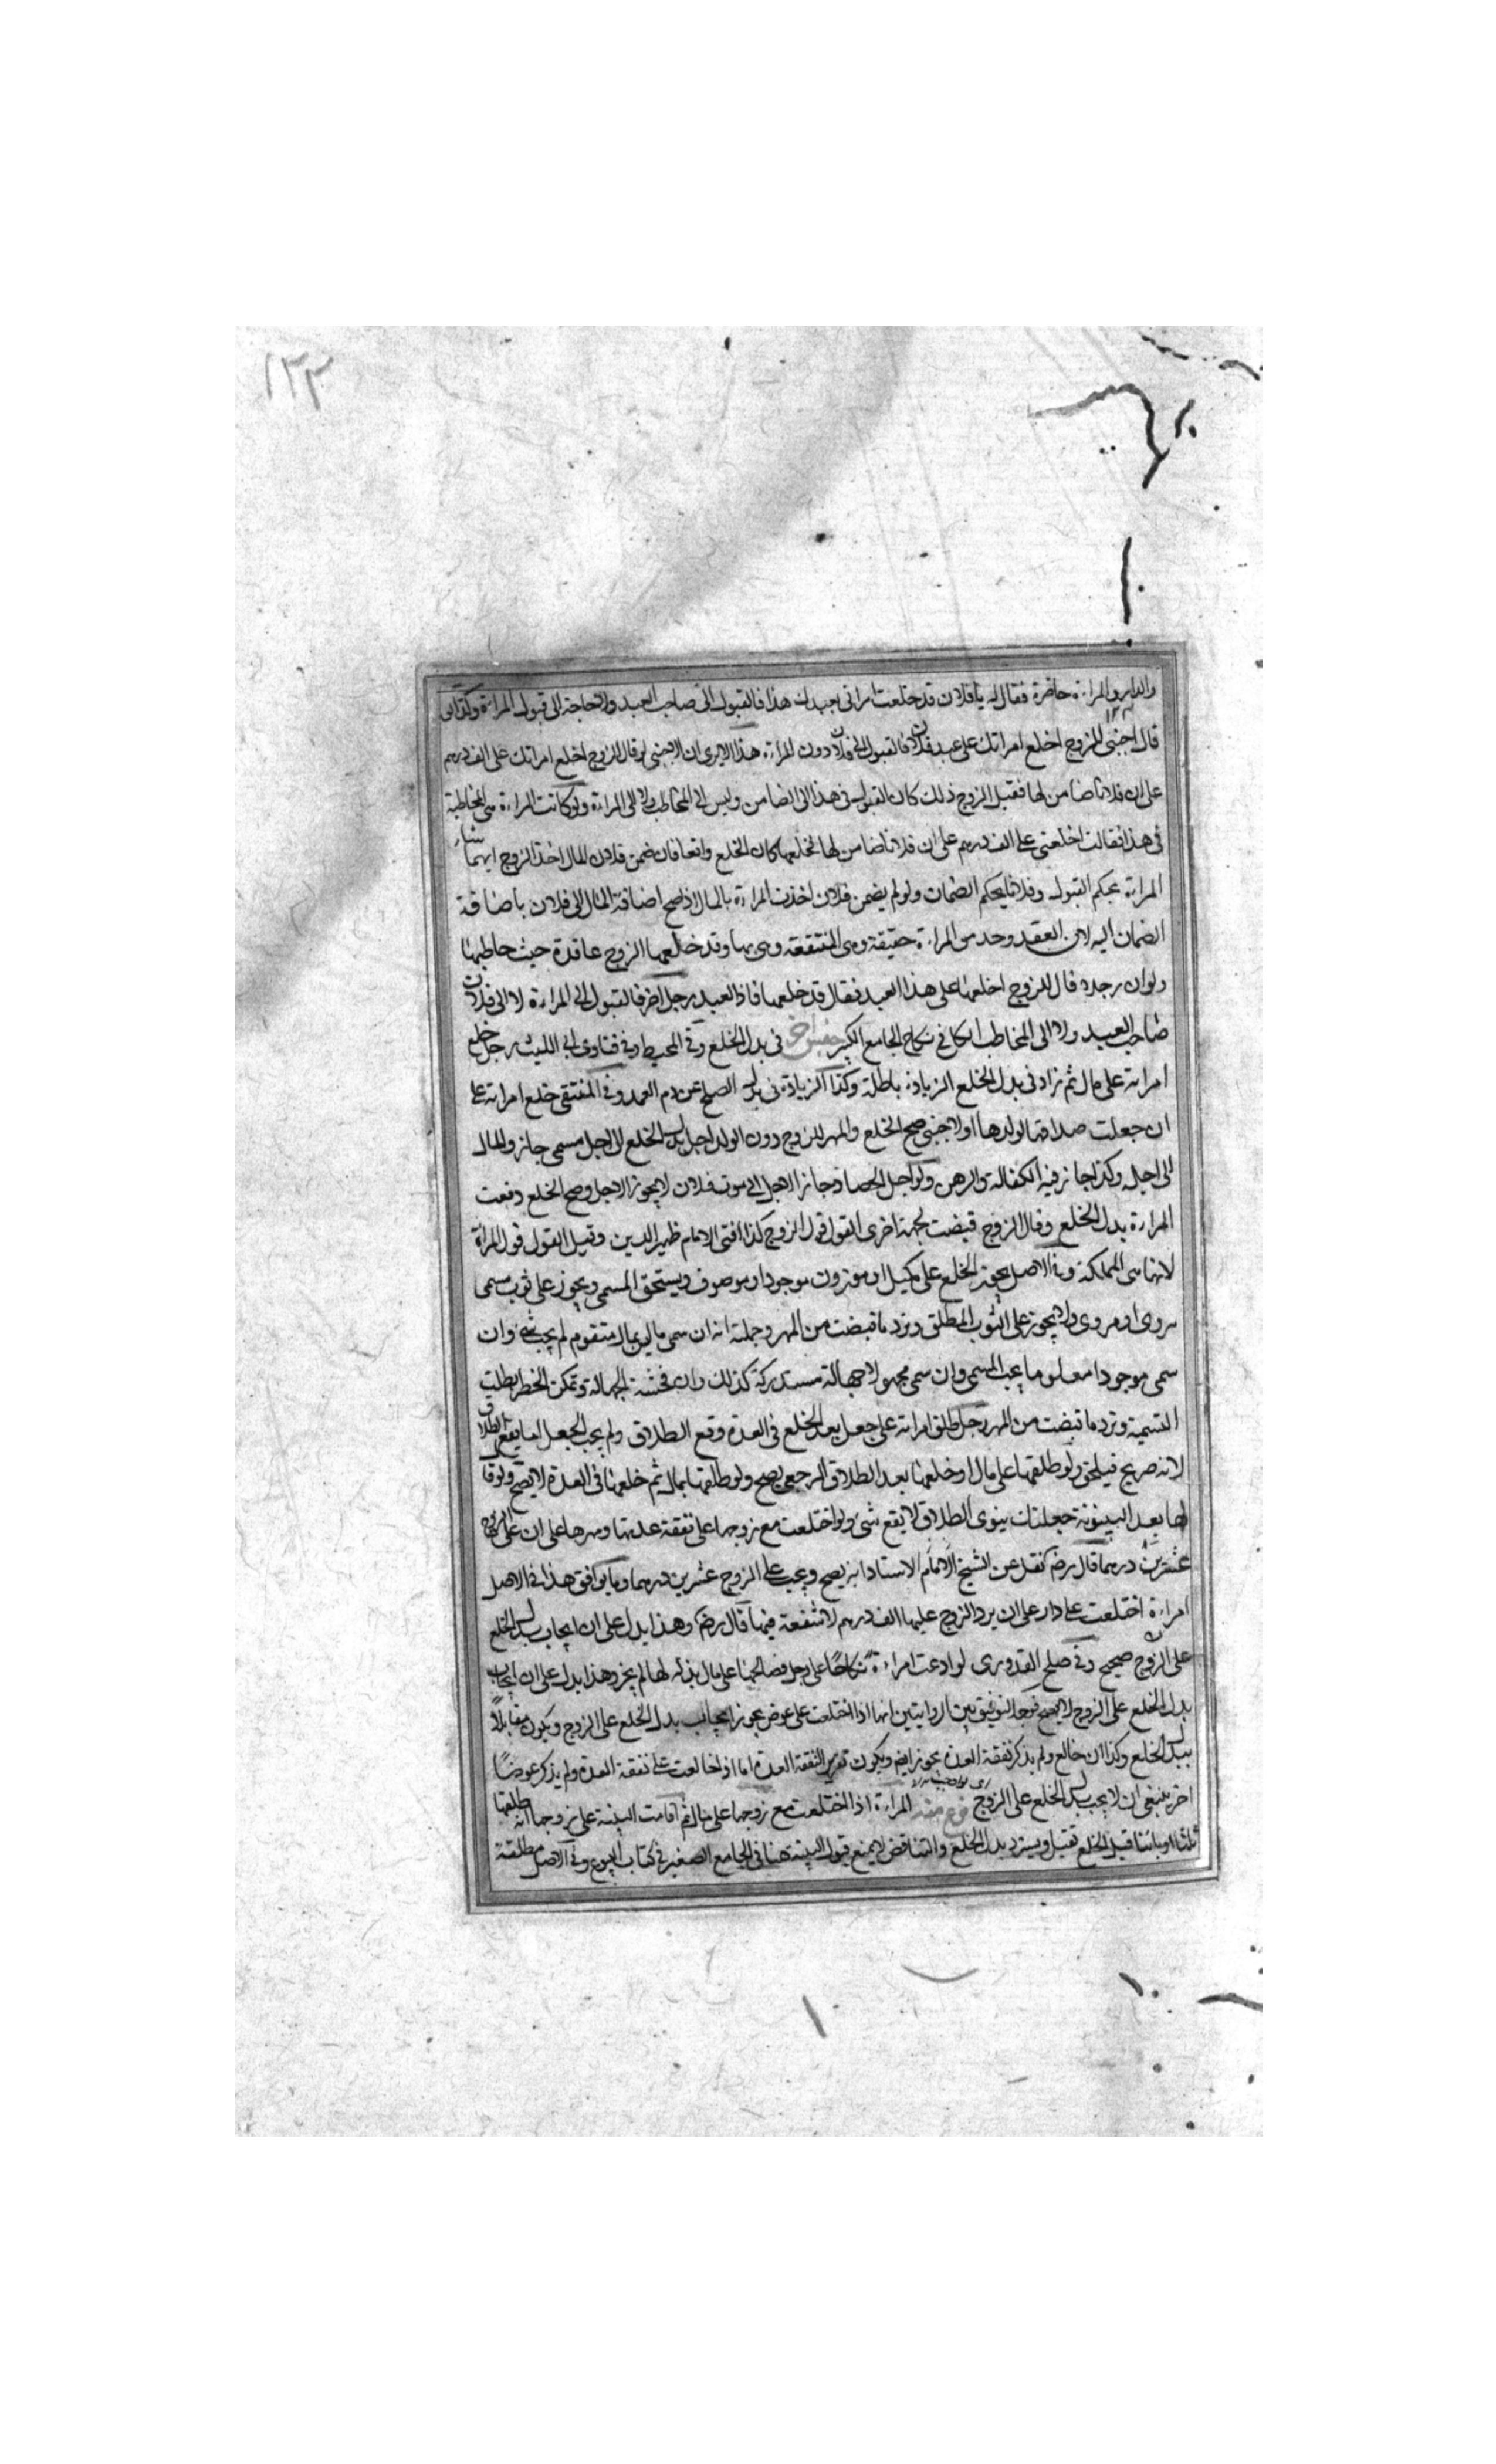 ١٢٣
والدار والمراءة حاضرة فقال له يا فلان قد خلعت امراتى بعبدك هذا فالقبول الى صاحب العبد ولا حاجة الى قبول المراءة وكذا لو
قال اجنبى للزوج اخلع امراتك على عبد فلان فالقبول الى فلان دون المراءة هذا الا يرى ان الاجنبى لو قال للزوج اخلع امراتك على الف درهم
على ان فلانا ضامن لها فقبل الزوج ذلك كان القبول فى هذا الى الضامن وليس الى المخاطب ولا الى المراءة ولو كانت المراءة هى المخاطبة
فى هذا فقالت اخلعنى على الف درهم على ان فلانا ضامن لها فخلعها كان الخلع واقعا فان ضمن فلان المال اخذ الزوج ايهما شاء
المراءة بحكم القبول وفلانا بحكم الضمان ولو لم يضمن فلان اخذت المراءة بالمال اذا صح اضافة المال الى فلان باضافة
الضمان اليه لان العقد وجد من المراءة حقيقة وهى المنتفعة وقد خلعها الزوج عاقدة حيث خاطبها
ولو ان رجلا قال للزوج اخلعها على هذا العبد فقال قد خلعها فاذا العبد لرجل اخر فالقبول الى المراءة لا الى فلان
صاحب العبد ولا الى المخاطب الكل فى نكاح الجامع الكبير فى بدل الخلع وفى المحيط وفى فتاوى ابى الليث رجل خلع
امراته على مال ثم زاد فى بدل الخلع الزيادة باطلة وكذا الزيادة فى بدل الصلح عن دم العمد وفى المنتقى خلع امراته على
ان جعلت صداقها لولدها او لاجنبى صح الخلع والمهر للزوج دون الولد اجل بدل الخلع الى اجل مسمى جاز والمال
الى اجله وكذا جاز فيه الكفالة والرهن ولو اجل الحصاد جاز الاجل الى موت فلان لا يجوز الاجل وصح الخلع دفعت
المراءة بدل الخلع وقال الزوج قبضت لجهة اخرى القول قول الزوج كذا افتى الامام ظهير الدين وقيل القول قول المراة
لانها هى المملكة وفى الاصل يجوز الخلع على مكيل او موزون موجود او موصوف ويستحق المسمى ويجوز على ثوب مسمى
هروى او مروى ولا يجوز على الثوب المطلق وترد ما قبضت من المهر وجملته انه ان سمى ما ليس بمال متقوم لم يجب شئ وان
سمى موجودا معلوما يجب المسمى وان سمى مجهولا جهالة مستدركة كذلك وان فحشت الجهالة وتمكن الخطر بطلت
التسمية وترد ما قبضت من المهر رجل طلق امراته على جعل بعد الخلع فى العدة وقع الطلاق ولم يجب الجعل اما يقع الطلاق
لانه صريح فيلحق ولو طلقها على مال او خلعها بعد الطلاق الرجعى يصح ولو طلقها بمال ثم خلعها فى العدة لا يصح ولو قال
لها بعد البينونة خلعتك ينوى الطلاق لا يقع شئ ولو اختلعت مع زوجها على نفقة عدتها ومهرها على ان على الزوج
عشرين درهما قال رضه نقل عن الشيخ الامام الاستاذ انه يصح ويجب على الزوج عشرين درهما وما يوافق هذا فى الاصل
امراءة اختلعت على دار على ان يرد الزوج عليها الف درهم لا شفعة فيها قال رضه وهذا يدل على ان ايجاب بدل الخلع
على الزوج صحيح وفى صلح القدورى لو ادعت امراءة نكاحا على رجل فصالحها على مال بذله لها لم يجز وهذا يدل على ان ايجاب
بدل الخلع على الزوج لا يصح فوجه التوفيق بين الروايتين انها اذا اختلعت على عوض يجوز ايجاب بدل الخلع على الزوج ويكون مقابلا
ببدل الخلع وكذا ان خالع ولم يذكر نفقة العدة يجوز ايضا ويكون تقدير النفقة العدة اما اذا خالعت على نفقة العدة ولم يذكر عوضا
اخر ينبغى ان لا يجب بدل الخلع على الزوج المراءة اذا اختلعت مع زوجها على مال ثم اقامت البينة على زوجها انه طلقها
ثلثا او بائنا قبل الخلع تقبل ويسترد بدل الخلع والتناقض لا يمنع قبول البينة هنا فى الجامع الصغير فى كتاب البيوع وفى الاصل مطلقة